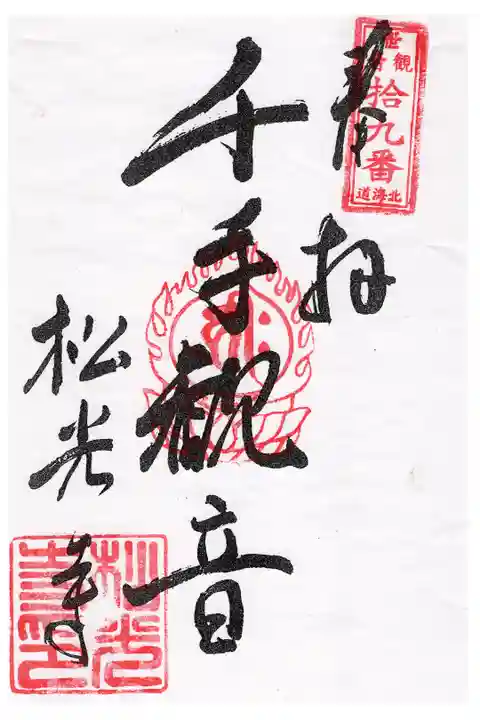 奉拝
観音
拾九番
北海道
千手観音
松光寺
松光寺印